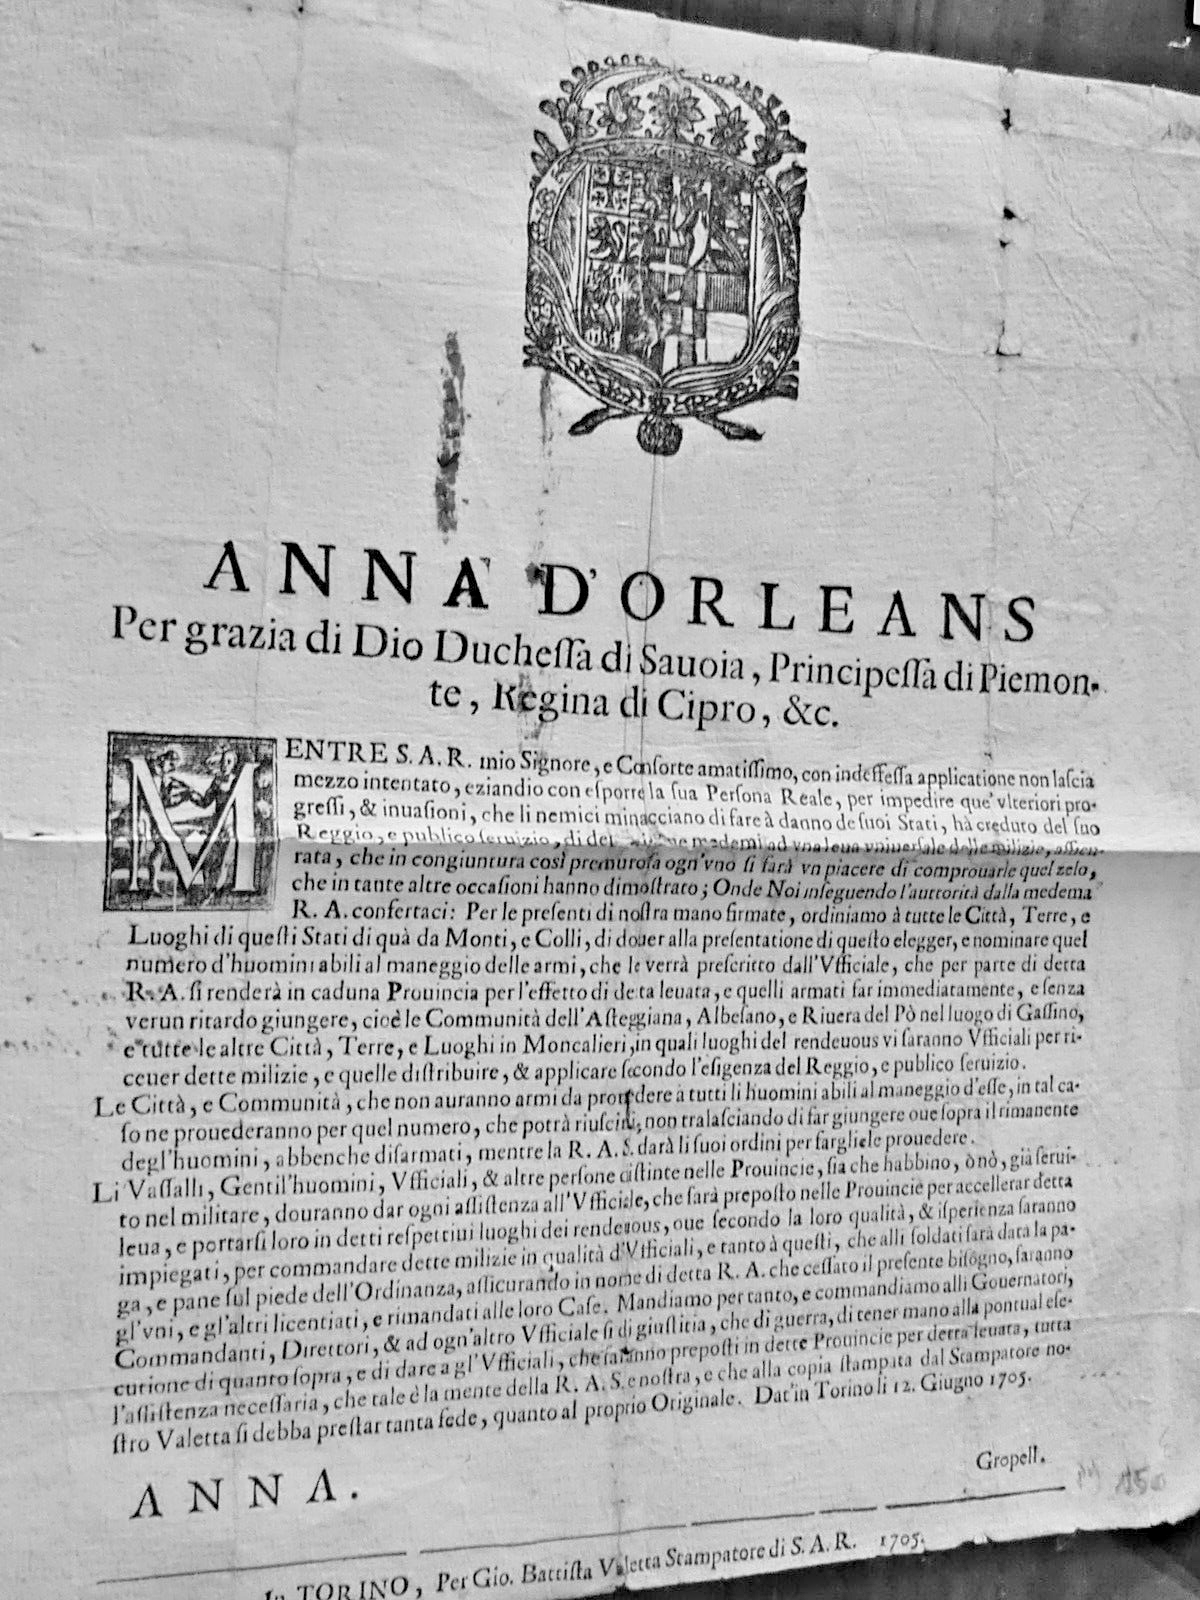 ANNA D'ORLEANS
Per grazia di Dio Ducheſſa di Sauoia, Principeſſa di Piemon-
te, Regina di Cipro, &c.
MENTRE S. A. R. mio Signore, e Conſorte amatiſſimo, con indeffeſſa applicatione non laſcia
mezzo intentato, eziandio con eſporre la ſua Perſona Reale, per impedire que' vlteriori pro-
greſſi, & inuaſioni, che li nemici minacciano di fare à danno de ſuoi Stati, hà creduto del ſuo
Reggio, e publico ſeruizio, di medemi ad vna leua vniuerſale delle milizie, aſſicu-
rata, che in congiuntura così premuroſa ogn'vno ſi farà vn piacere di comprouarle quel zelo,
che in tante altre occaſioni hanno dimoſtrato; Onde Noi inſeguendo l'auttorità dalla medema
R. A. confertaci: Per le preſenti di noſtra mano firmate, ordiniamo à tutte le Città, Terre, e
Luoghi di queſti Stati di quà da Monti, e Colli, di douer alla preſentatione di queſto elegger, e nominare quel
numero d'huomini abili al maneggio delle armi, che le verrà preſcritto dall'Vfficiale, che per parte di detta
R. A. ſi renderà in caduna Prouincia per l'effetto di detta leuata, e quelli armati far immediatamente, e ſenza
verun ritardo giungere, cioè le Communità dell'Aſteggiana, Albeſano, e Riuera del Pò nel luogo di Gaſſino,
e tutte le altre Città, Terre, e Luoghi in Moncalieri, in quali luoghi del rendeuous vi ſaranno Vfficiali per ri-
ceuer dette milizie, e quelle diſtribuire, & applicare ſecondo l'eſigenza del Reggio, e publico ſeruizio.
Le Città, e Communità, che non auranno armi da prouedere à tutti li huomini abili al maneggio d'eſſe, in tal ca-
ſo ne prouederanno per quel numero, che potrà riuſcirli, non tralaſciando di far giungere oue ſopra il rimanente
degl'huomini, abbenche diſarmati, mentre la R. A. S. darà li ſuoi ordini per fargliele prouedere.
Li Vaſſalli, Gentil'huomini, Vfficiali, & altre perſone diſtinte nelle Prouincie, ſia che habbino, ò nò, già ſerui-
to nel militare, douranno dar ogni aſſiſtenza all'Vfficiale, che ſarà prepoſto nelle Prouincie per accellerar detta
leua, e portarſi loro in detti reſpettiui luoghi dei rendeuous, oue ſecondo la loro qualità, & iſperienza ſaranno
impiegati, per commandare dette milizie in qualità d'Vfficiali, e tanto à queſti, che alli ſoldati ſarà data la pa-
ga, e pane ſul piede dell'Ordinanza, aſſicurando in nome di detta R. A. che ceſſato il preſente biſogno, ſaranno
gl'vni, e gl'altri licentiati, e rimandati alle loro Caſe. Mandiamo per tanto, e commandiamo alli Gouernatori,
Commandanti, Direttori, & ad ogn'altro Vfficiale ſi di giuſtitia, che di guerra, di tener mano alla pontual eſe-
cutione di quanto ſopra, e di dare a gl'Vfficiali, che ſaranno prepoſti in dette Prouincie per detta leuata, tutta
l'aſſiſtenza neceſſaria, che tale è la mente della R. A. S. e noſtra, e che alla copia ſtampata dal Stampatore no-
ſtro Valetta ſi debba preſtar tanta fede, quanto al proprio Originale. Dat' in Torino li 12. Giugno 1705.
ANNA.
Gropell.
In TORINO, Per Gio. Battiſta Valetta Stampatore di S. A. R. 1705.